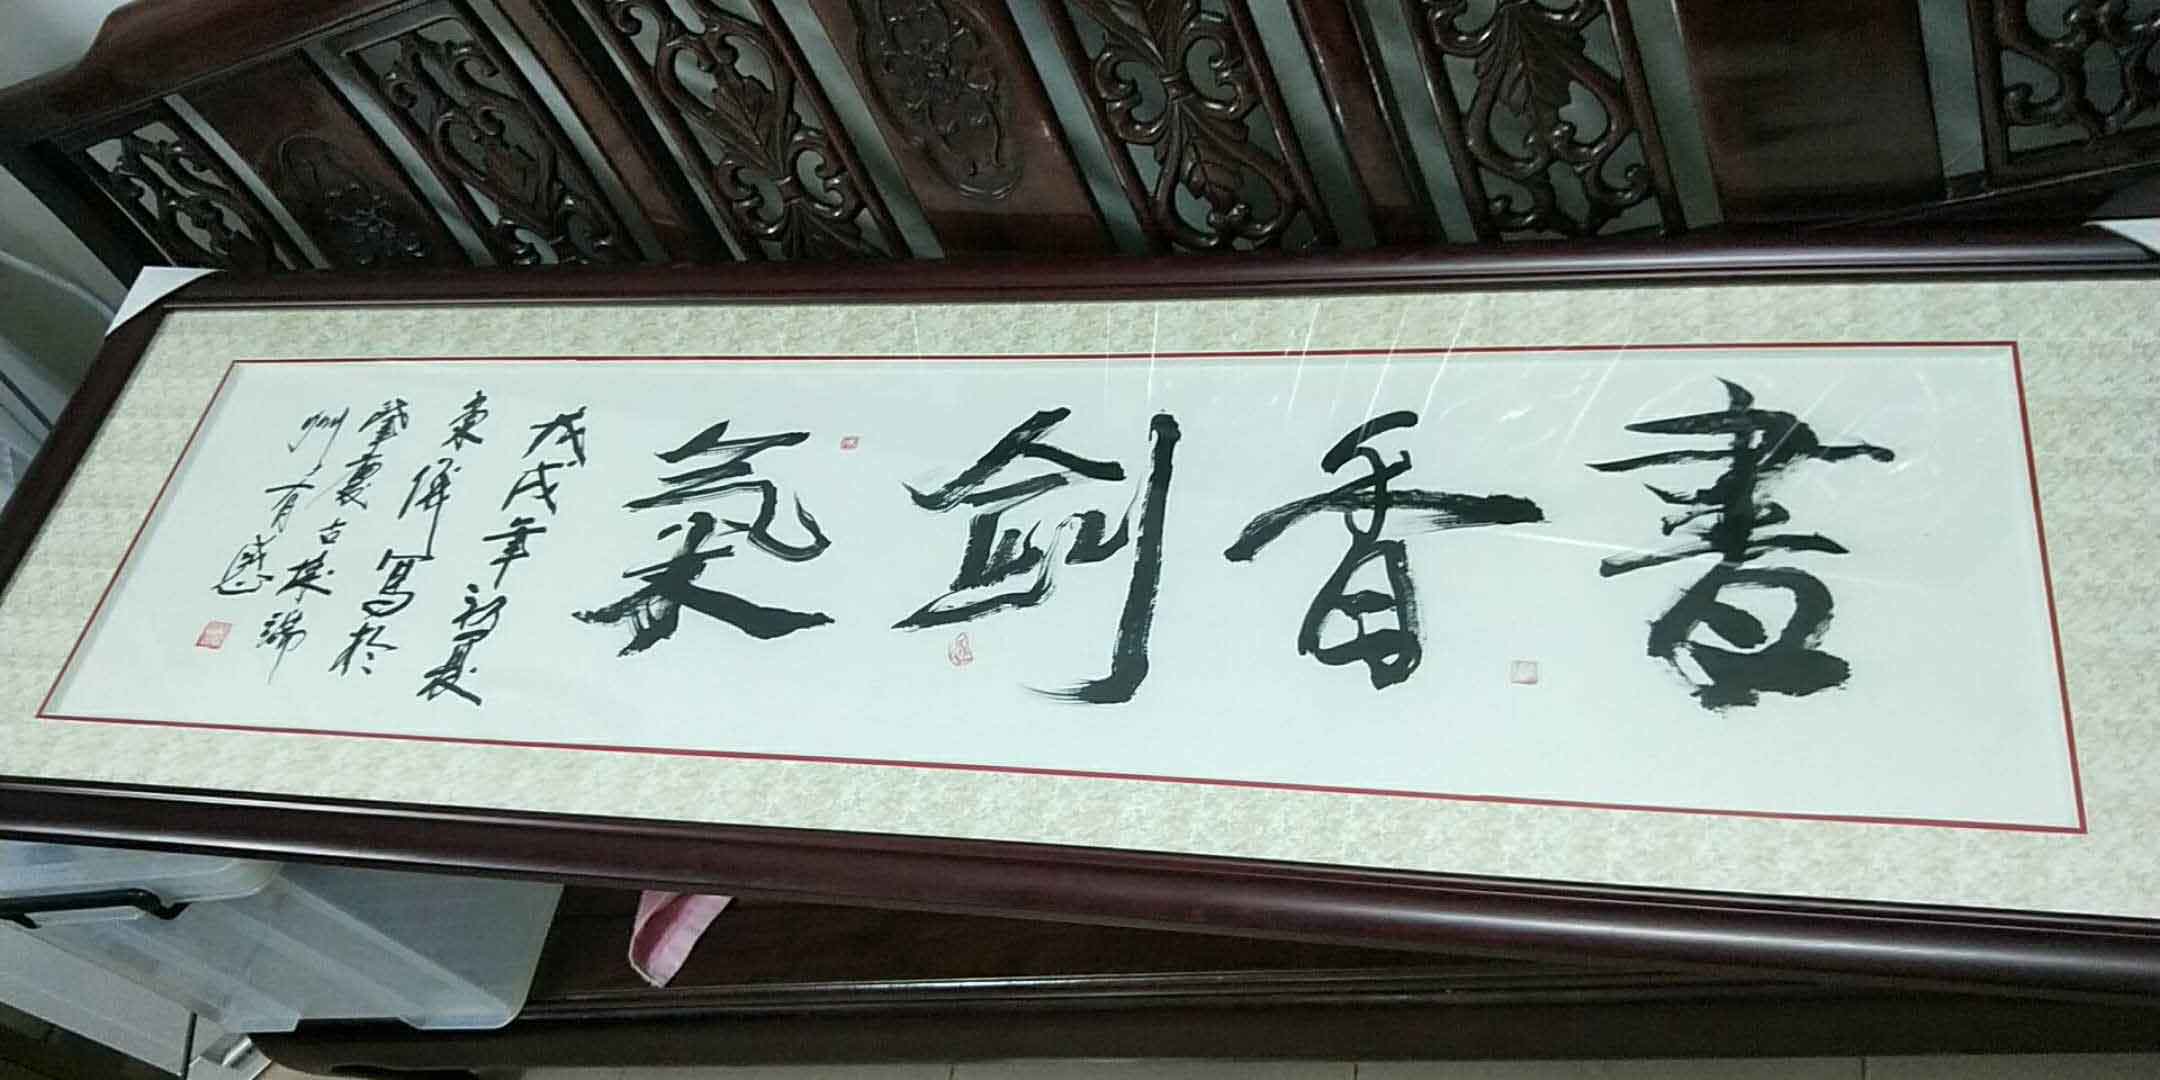 書香劍氣
戊戌年初夏
東偉寫於
肇慶古城端
州有感